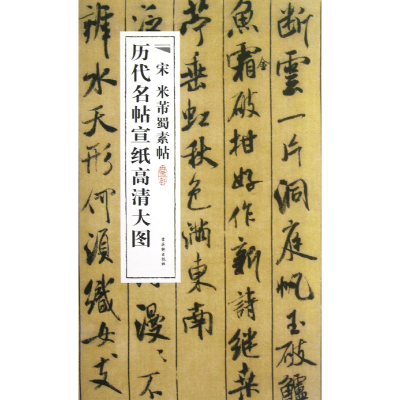 断雲一片洞庭帆玉破鱸
魚霜金破柑好作新詩继桑
苧垂虹秋色满東南
宋 米芾蜀素帖
历代名帖宣纸高清大图
漫〻不
辨水天形何須織女支